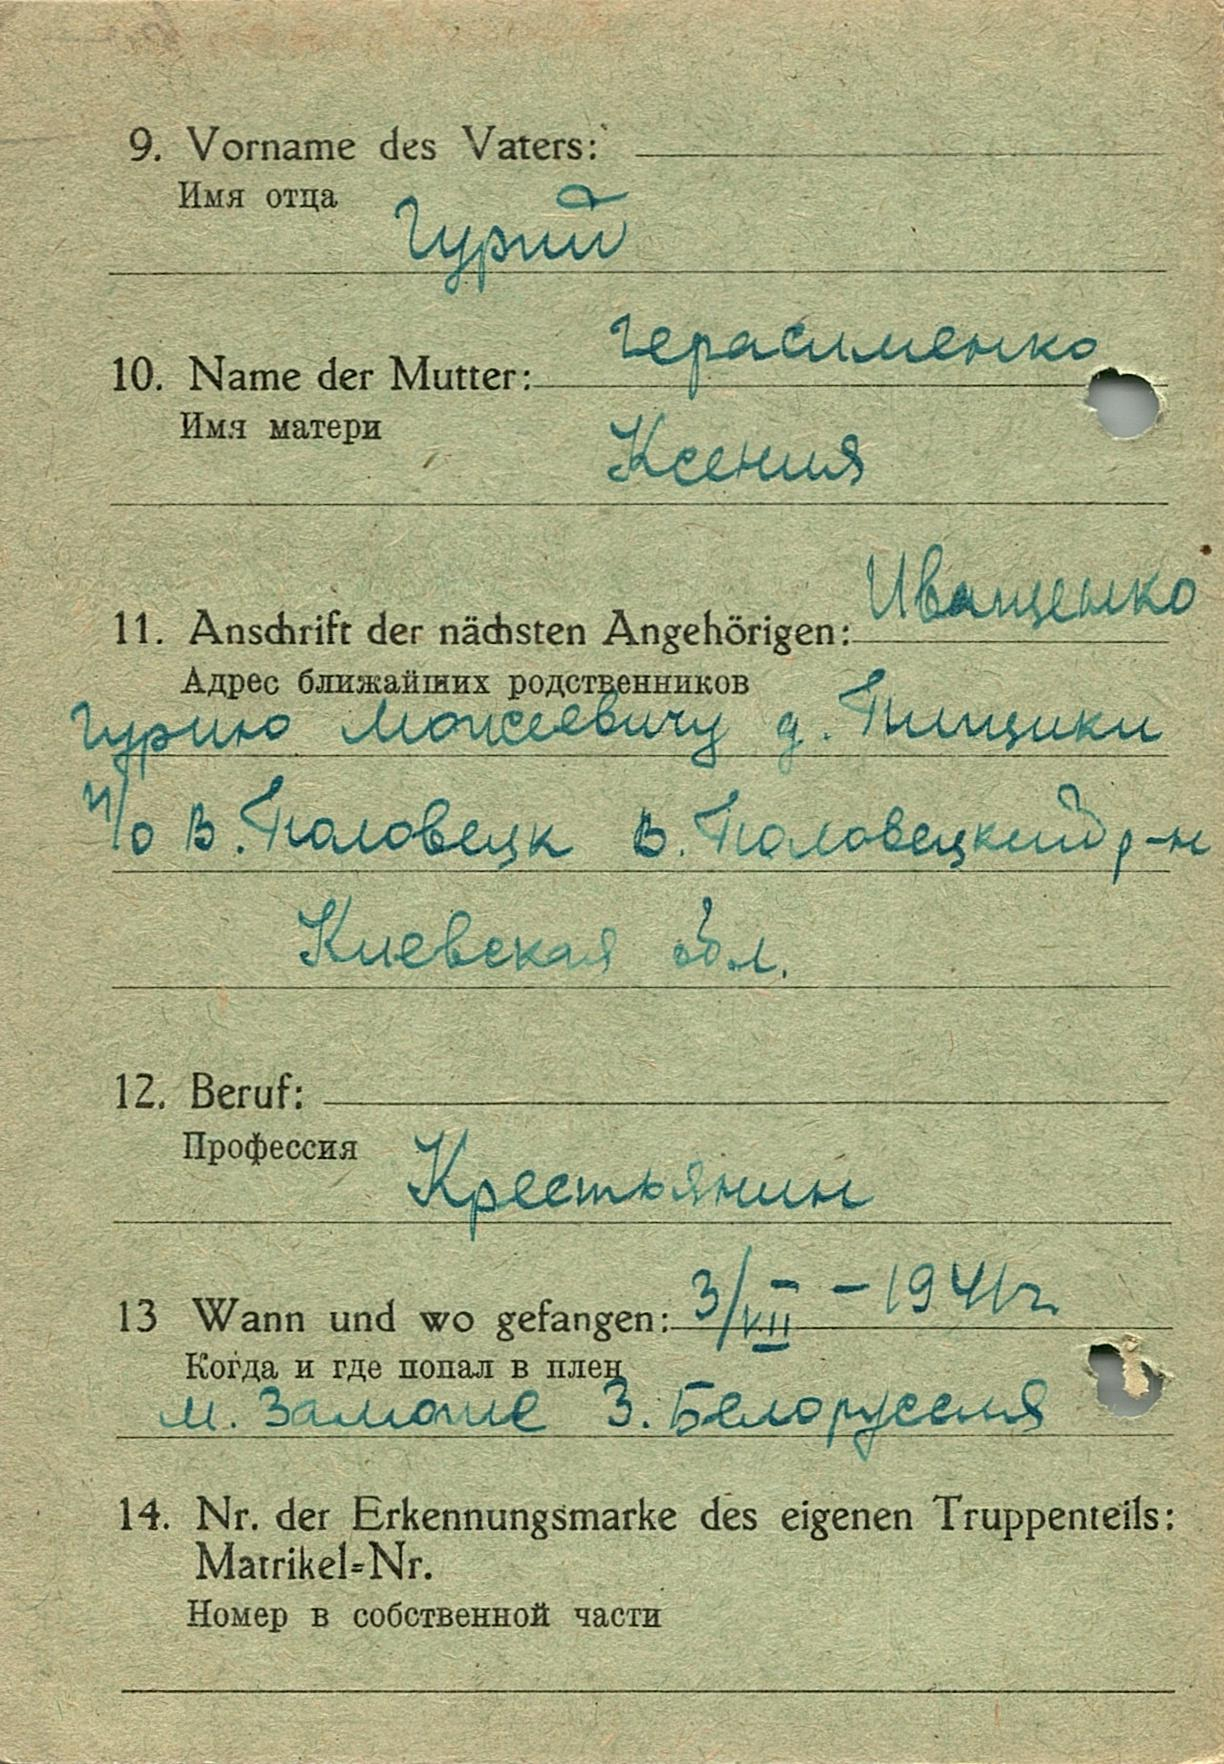 9. Vorname des Vaters:
Имя отца
Гурий
Герасименко
10. Name der Mutter:
Имя матери
Ксения
Иващенко
11. Anschrift der nächsten Angehörigen:
Адрес ближайших родственников
Гурию Моисеевичу д. Пищики
п/о В. Половецк В. Половецкий р-н
Киевская обл.
12. Beruf:
Профессия
Крестьянин
13 Wann und wo gefangen: 3/VII – 1941 г.
Когда и где попал в плен
м. Замоше З. Белоруссия
14. Nr. der Erkennungsmarke des eigenen Truppenteils:
Matrikel=Nr.
Номер в собственной части